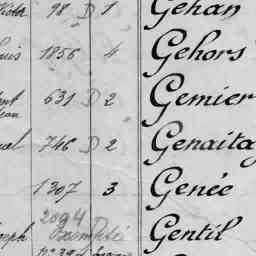 98 D 1 Gehan
1856 4 Gehors
631 D 2 Gemier
746 D 2 Genaita
1307 3 Genée
2094
Gentil